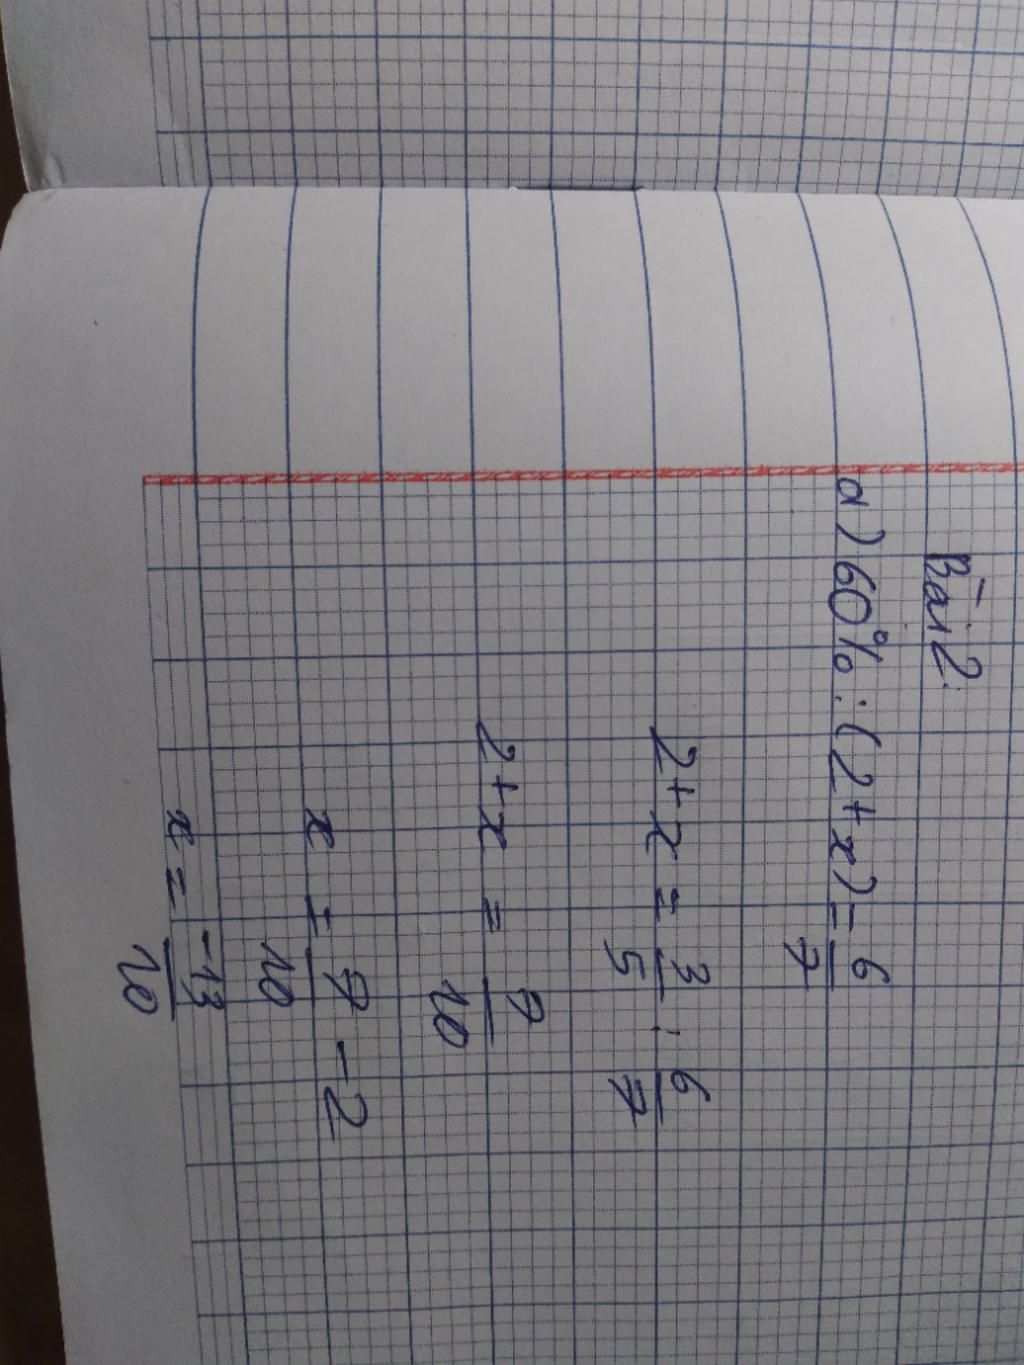 Bài 2:
a) 60% : (2 + x) = 6/7
2 + x = 3/5 : 6/7
2 + x = 7/10
x = 7/10 - 2
x = -13/10